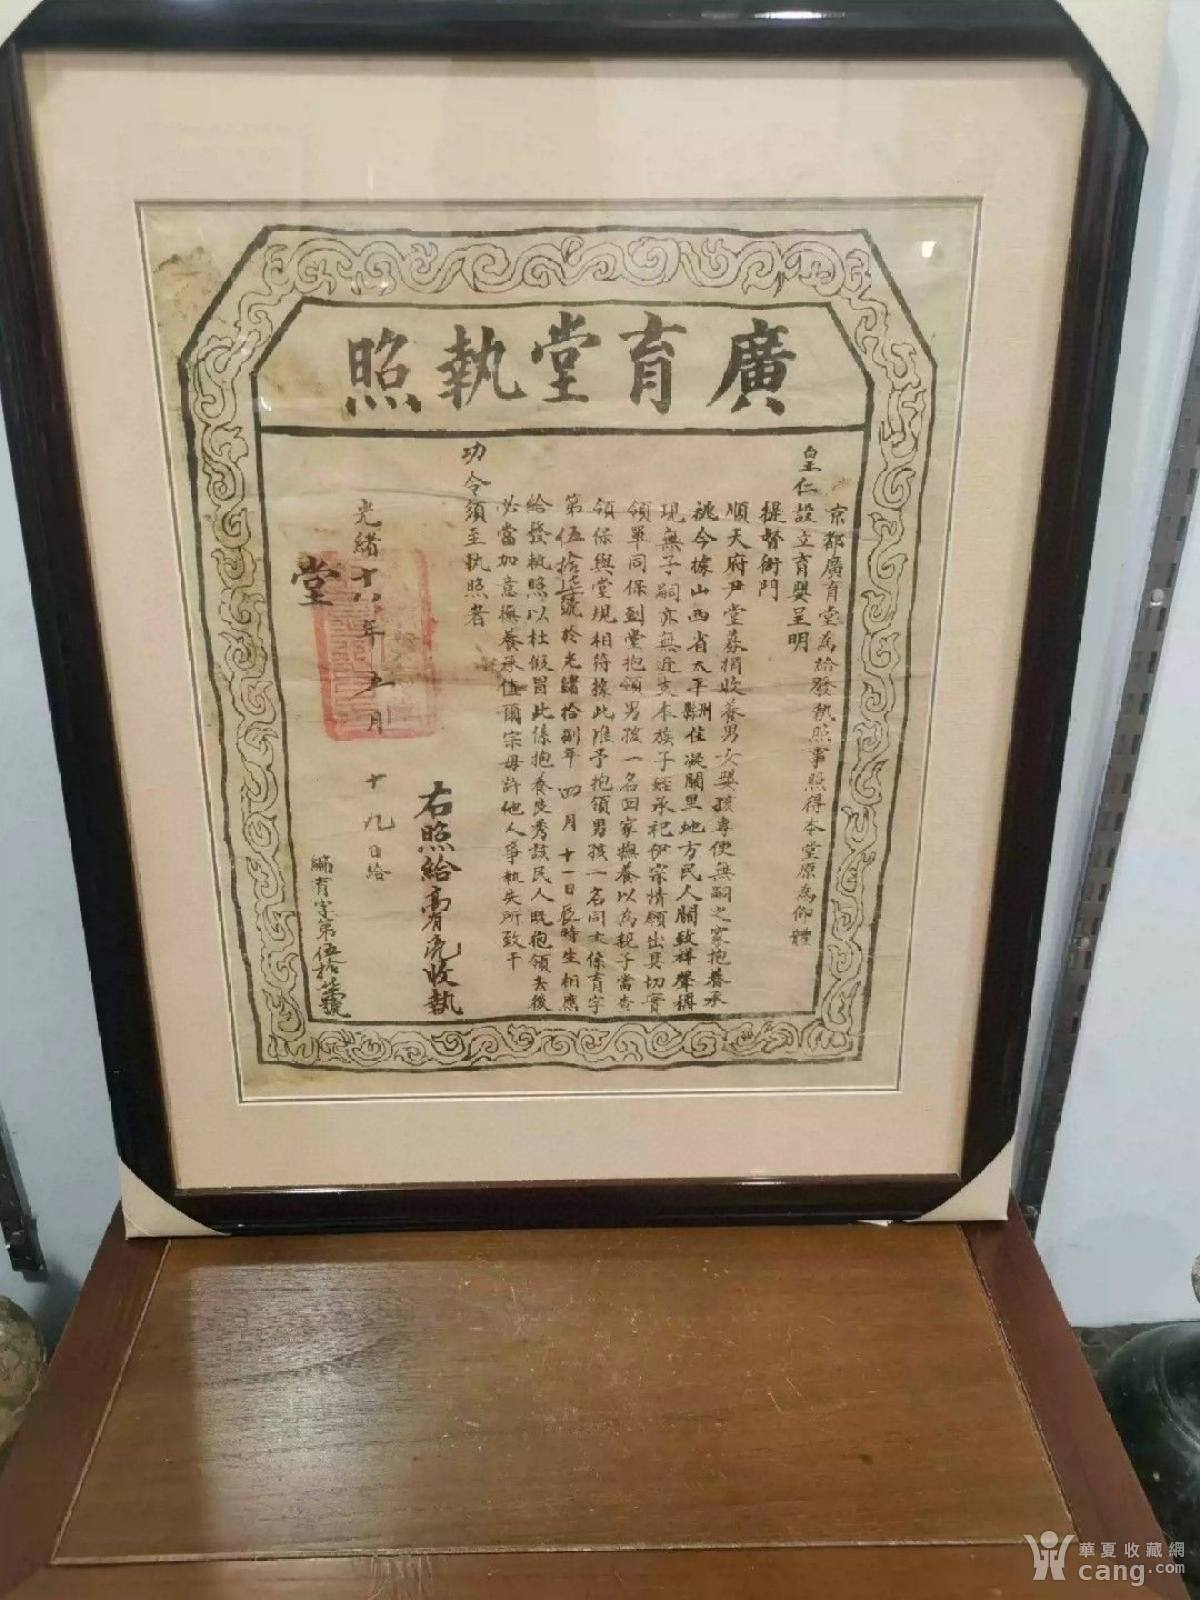 廣育堂執照
京都廣育堂為給發執照事照得本堂原為仰體
皇仁設立育嬰呈明
提督衙門
順天府尹堂募捐收養男女嬰孩專便無嗣之家抱養承
祧今據山西省太平縣住 關里地方民人關致祥聲稱
現無子嗣亦無近支本族子姪承祀伊宗情願出具切實
領單同保到堂抱領男孩一名回家撫養以為親子當查
領保與堂規相符據此准予抱領男孩一名同士係育字
第伍拾柒號於光緒拾捌年四月十一日辰時生相應
給發執照以杜假冒此係抱養良秀該民人既抱領去後
必當加意撫養承值爾宗毋許他人爭執失所致干
功令須至執照者
右照給 收執
光緒十八年五月十九日給
堂
編育字第伍拾柒號
華夏收藏網
cang.com